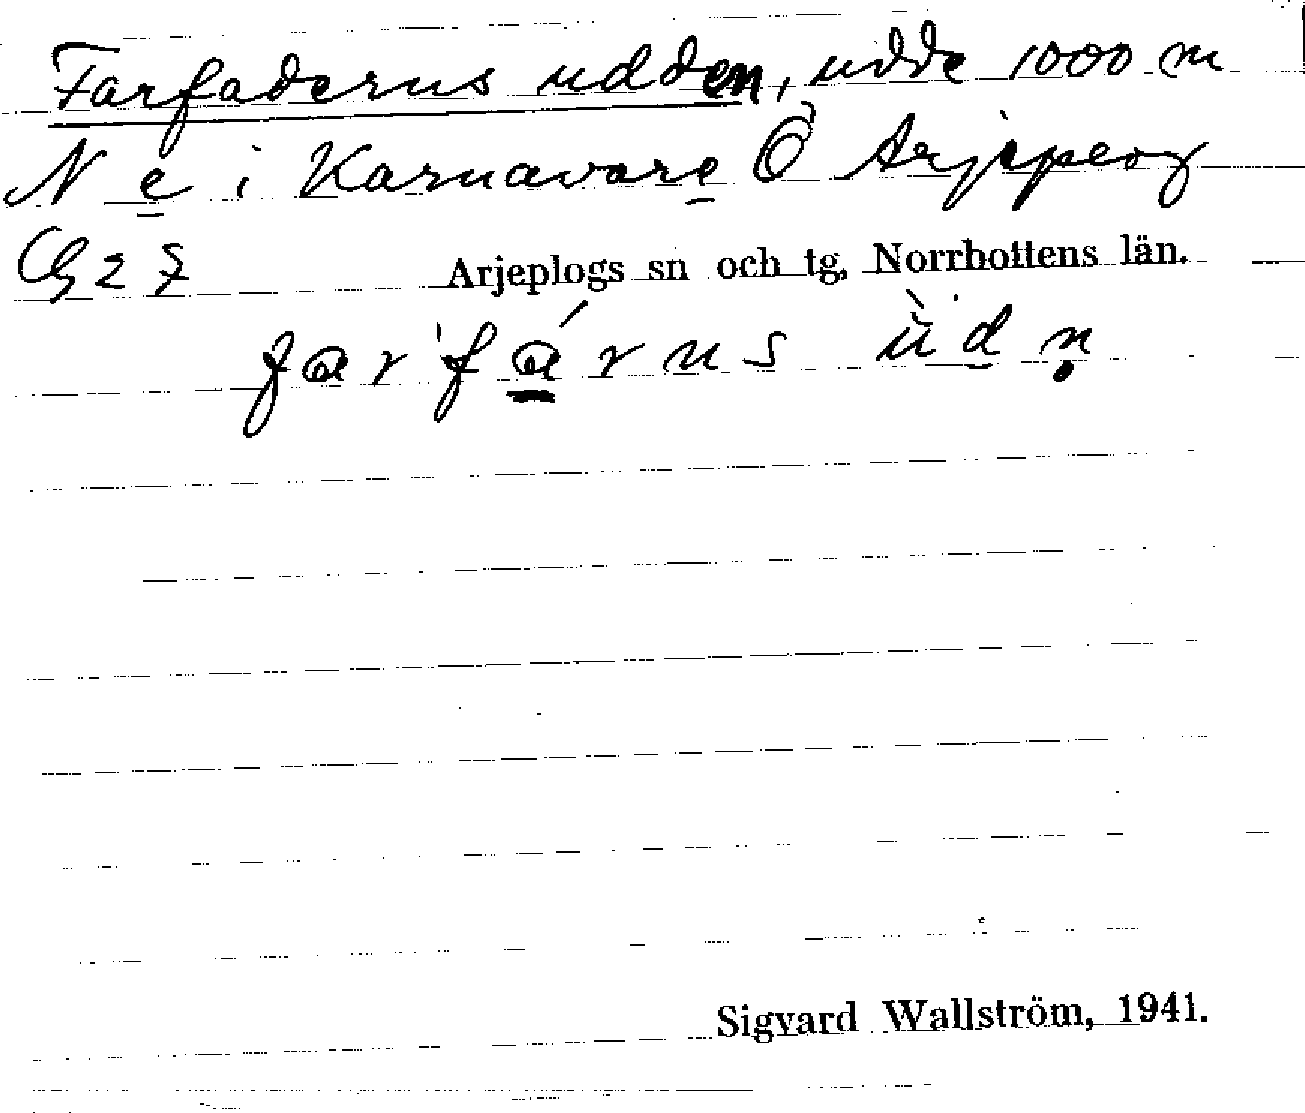 Farfaderns udden, udde 1000 m
N e i Karnavare Ö Arjeplog
27
Arjeplogs sn och tg, Norrbottens län.
farˈfárns ùdṇ
Sigvard Wallström, 1941.